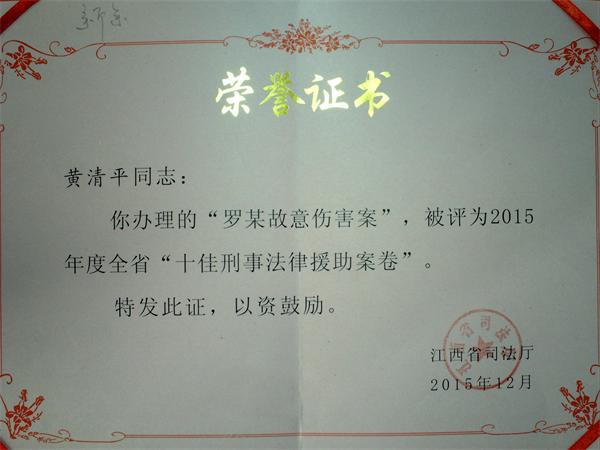 荣誉证书
黄清平同志：
你办理的“罗某故意伤害案”，被评为2015
年度全省“十佳刑事法律援助案卷”。
特发此证，以资鼓励。
江西省司法厅
2015年12月